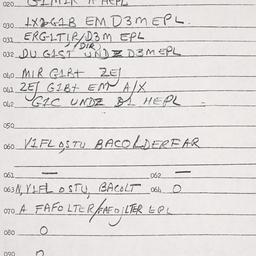 020. G1M1R A HEPL
030. 1X2G1B EM D3M EPL.
031. ERG1T1R/D3M EPL
(DIR)
032. DU G1ST UND Z D3MEPL
040. MIR G1B+ ZEJ
041 ZEJ G1B+ EM A/X
042 G1C UNDZ B1 HEPL.
050.
060 V1FLOSTU BACOLDERFAR
061. — 062. —
063 N, V1FLOSTU, BACOLT 064. O
070. A FAFOLTER/FAFOJLTER EPL
080 O
090 O